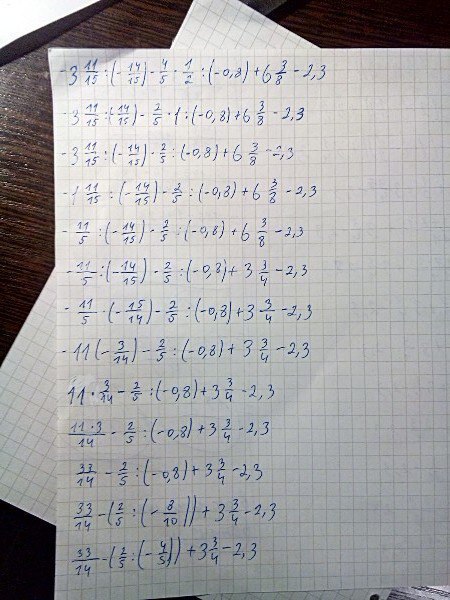 -3 11/15 : (-14/15) - 4/5 · 1/2 : (-0,8) + 6 3/8 - 2,3
-3 11/15 : (-14/15) - 2/5 · 1 : (-0,8) + 6 3/8 - 2,3
-3 11/15 : (-14/15) - 2/5 : (-0,8) + 6 3/8 - 2,3
-1 11/15 : (-14/15) - 2/5 : (-0,8) + 6 3/8 - 2,3
- 11/5 : (-14/15) - 2/5 : (-0,8) + 6 3/8 - 2,3
- 11/5 : (-14/15) - 2/5 : (-0,8) + 3 3/4 - 2,3
- 11/5 · (-15/14) - 2/5 : (-0,8) + 3 3/4 - 2,3
-11 (-3/14) - 2/5 : (-0,8) + 3 3/4 - 2,3
11 · 3/14 - 2/5 : (-0,8) + 3 3/4 - 2,3
11·3/14 - 2/5 : (-0,8) + 3 3/4 - 2,3
33/14 - 2/5 : (-0,8) + 3 3/4 - 2,3
33/14 - (2/5 : (-8/10)) + 3 3/4 - 2,3
33/14 - (2/5 : (-4/5)) + 3 3/4 - 2,3